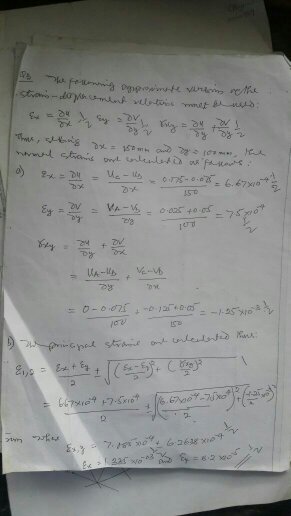 The following approximate version of the
strain-displacement relations must be used:
εx = ∂u/∂x 1/2 εy = ∂v/∂y 1/2 γxy = ∂u/∂y + ∂v/∂x 1/2
Thus, setting ∂x = 150mm and ∂y = 100mm, the
normal strains are calculated as follows:
a) εx = ∂u/∂x = (uC - uD)/∂x = (0.175 - 0.075)/150 = 6.67×10⁻⁴ 1/2
εy = ∂v/∂y = (vA - vD)/∂y = (0.025 + 0.05)/100 = 7.5×10⁻⁴ 1/2
γxy = ∂u/∂y + ∂v/∂x
= (uA - uD)/∂y + (vC - vD)/∂x
= (0 - 0.075)/100 + (-0.125 + 0.05)/150 = -1.25×10⁻³ 1/2
b) The principal strains are calculated thus:
ε1,2 = (εx + εy)/2 ± √((εx - εy)/2)² + (γxy/2)²
= (6.67×10⁻⁴ + 7.5×10⁻⁴)/2 ± √((6.67×10⁻⁴ - 7.5×10⁻⁴)/2)² + (-1.25×10⁻³/2)²